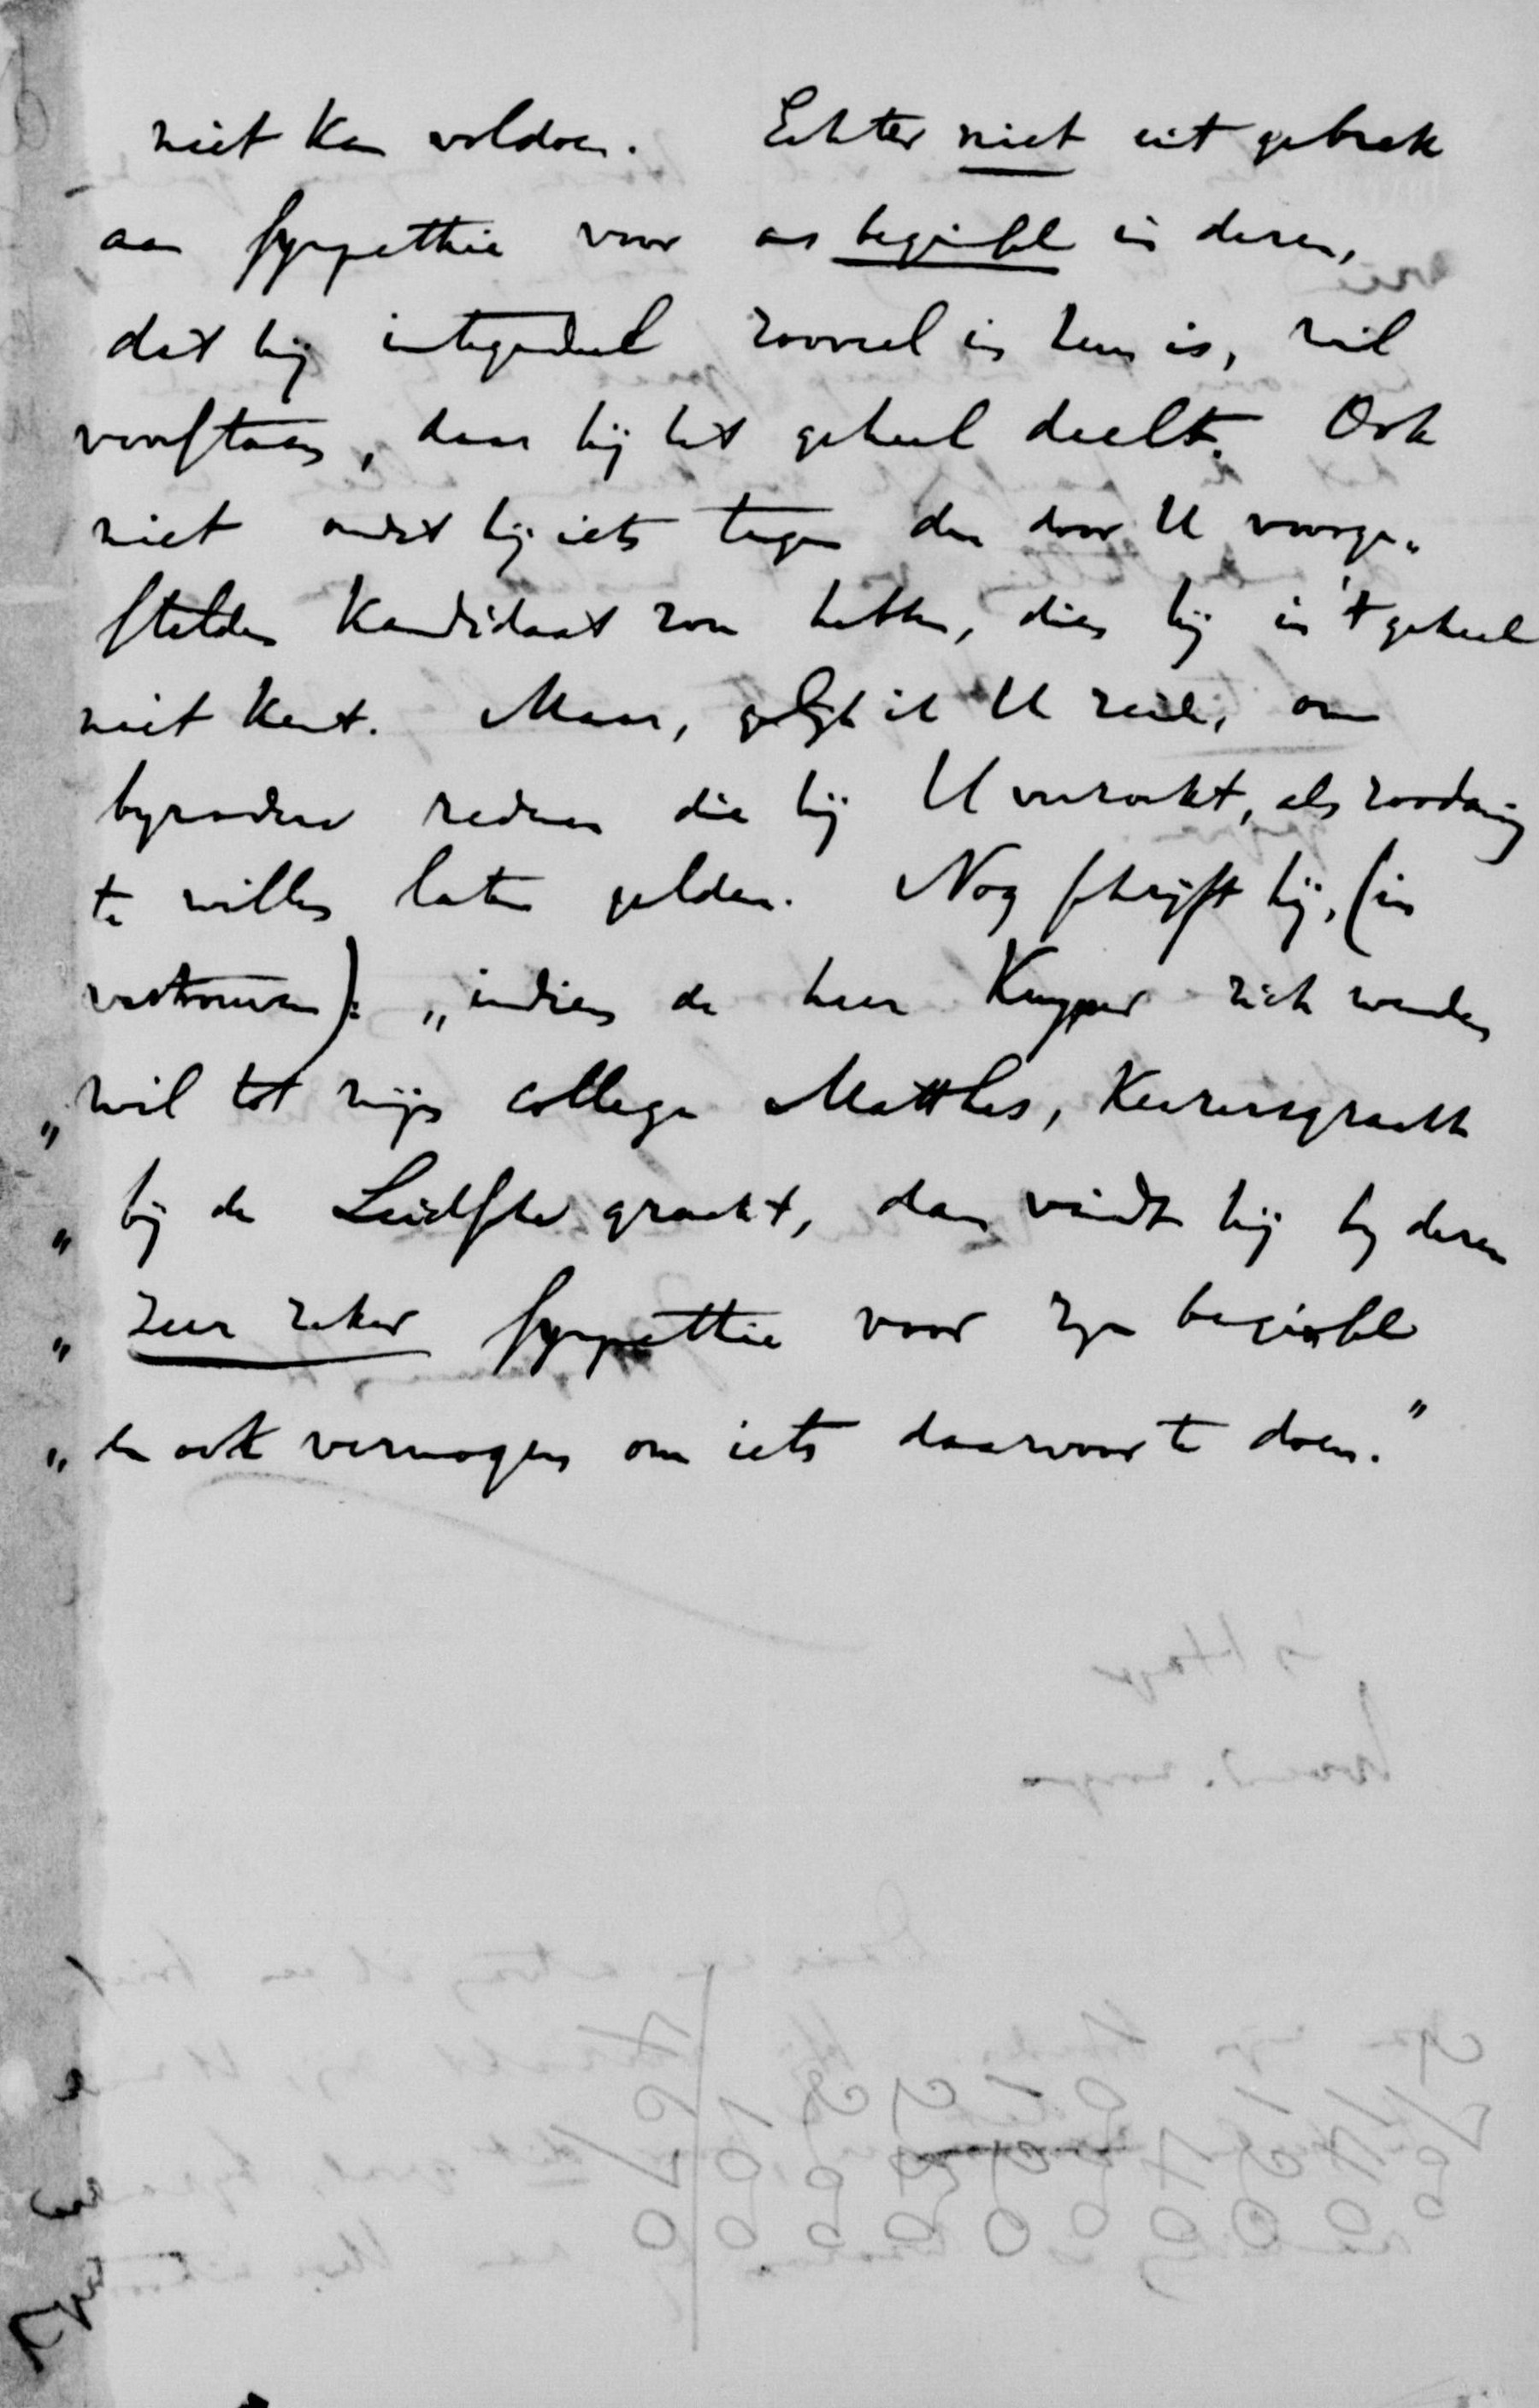 niet kan voldoen. Echter niet uit gebrek
aan sympathie voor ons beginsel in dezen,
dat hij integendeel zooveel in hem is, wil
voorstaan, daar hij het geheel deelt. Ook
niet omdat hij iets tegen den door U voorge„
stelden Kandidaat zou hebben, dien hij in 't geheel
niet kent. Maar, gelijk ik U zeide, om
byzondere redenen die hij U verzoekt, als zoodanig
te willen laten gelden. Nog schrijft hij, (in
vertrouwen): „indien de heer Kuyper zich wenden
„wil tot mijn collega Matthes, Keizersgracht
„bij de Leidsche gracht, dan vindt hij by dezen
„zeer zeker sympathie voor zyn beginsel
„en ook vermogen om iets daarvoor te doen."